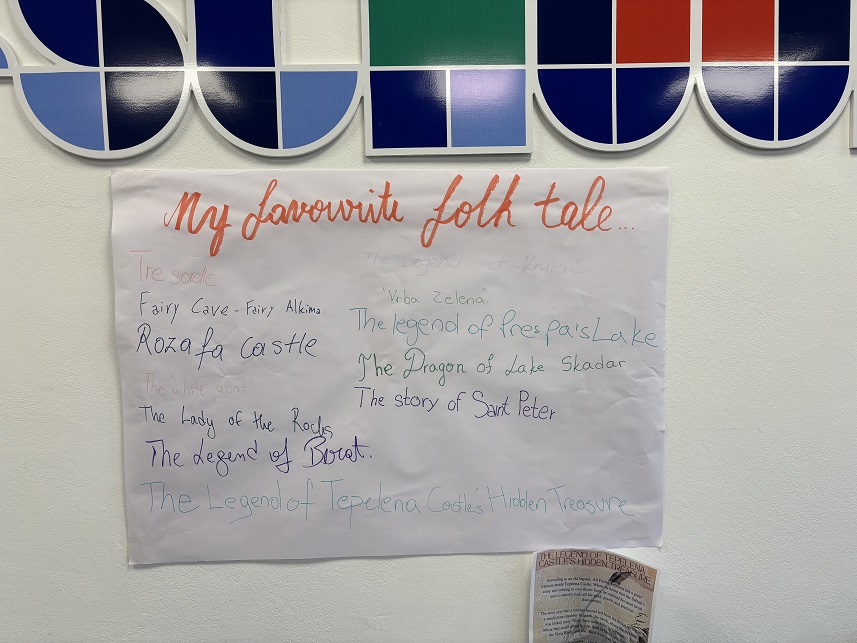 My favourite folk tale...
Tre sorelle
Fairy Cave - Fairy Alkima
Rozafa castle
The "white goat"
The Lady of the Rocks
The Legend of Berat.
The Legend of Kruja
"Vrba Zelena"
The legend of Prespa's Lake
The Dragon of Lake Skadar
The story of Saint Peter
The Legend of Tepelena Castle's Hidden Treasure
THE LEGEND OF TEPELENA
CASTLE'S HIDDEN TREASURE